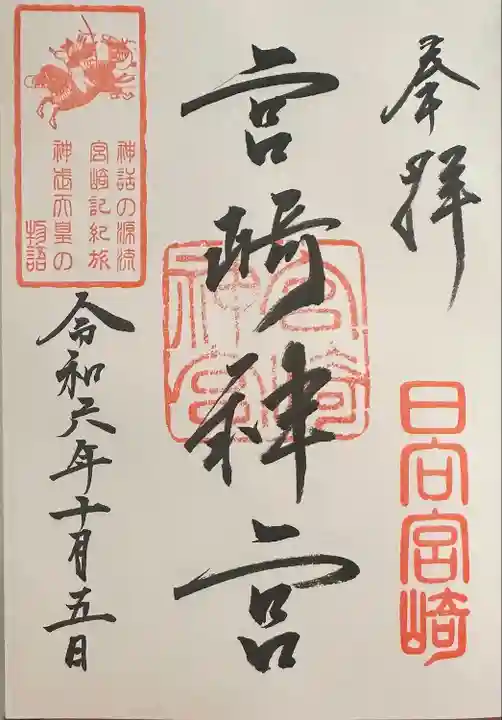 奉拝
日向宮崎
宮崎神宮
宮崎神宮
神話の源流
宮崎記紀旅
神武天皇の
物語
令和六年十月五日